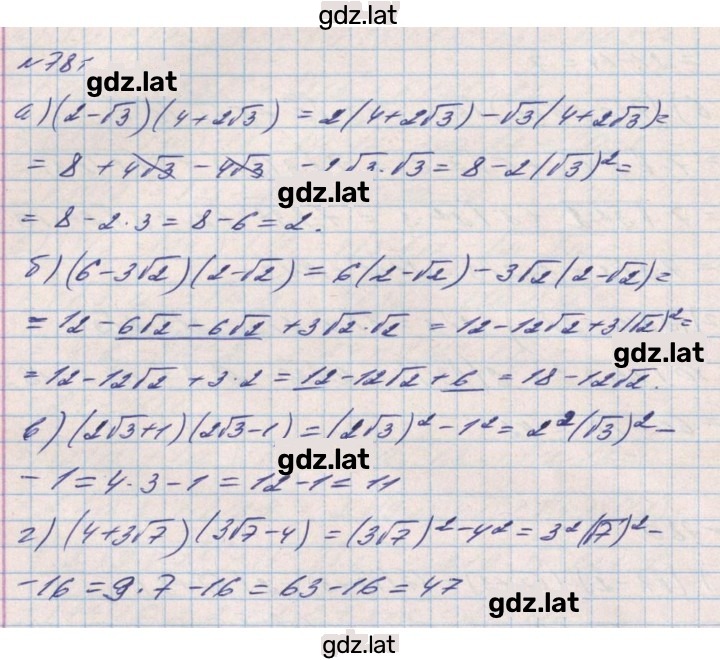 gdz.lat
№ 785
gdz.lat
а) (2-√3)(4+2√3) = 2(4+2√3) - √3(4+2√3) =
= 8 + 4√3 - 4√3 - 2√3·√3 = 8 - 2(√3)² =
gdz.lat
= 8 - 2·3 = 8 - 6 = 2.
б) (6-3√2)(2-√2) = 6(2-√2) - 3√2(2-√2) =
= 12 - 6√2 - 6√2 + 3√2·√2 = 12 - 12√2 + 3(√2)² =
gdz.lat
= 12 - 12√2 + 3·2 = 12 - 12√2 + 6 = 18 - 12√2.
в) (2√3+1)(2√3-1) = (2√3)² - 1² = 2²(√3)² -
gdz.lat
- 1 = 4·3 - 1 = 12 - 1 = 11
г) (4+3√7)(3√7-4) = (3√7)² - 4² = 3²(√7)² -
- 16 = 9·7 - 16 = 63 - 16 = 47
gdz.lat
gdz.lat